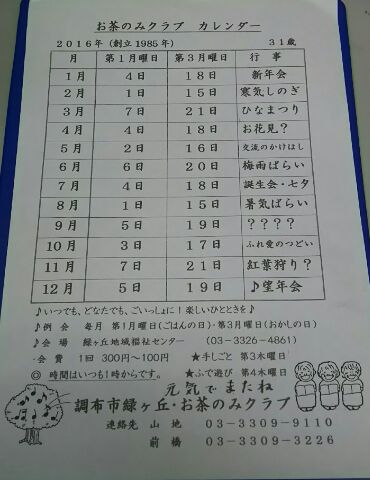 お茶のみクラブ カレンダー
2016年(創立1985年) 31歳
月 第1月曜日 第3月曜日 行事
1月 4日 18日 新年会
2月 1日 15日 寒気しのぎ
3月 7日 21日 ひなまつり
4月 4日 18日 お花見?
5月 2日 16日 交流のかけはし
6月 6日 20日 梅雨ばらい
7月 4日 18日 誕生会・七夕
8月 1日 15日 暑気ばらい
9月 5日 19日 ????
10月 3日 17日 ふれ愛のつどい
11月 7日 21日 紅葉狩り?
12月 5日 19日 ♪望年会
♪いつでも、どなたでも、ごいっしょに!楽しいひとときを♪
♪例 会 毎月 第1月曜日(ごはんの日)・第3月曜日(おかしの日)
♪会 場 緑ヶ丘地域福祉センター (03-3326-4861)
・会 費 1回 300円~100円 ★手しごと 第3木曜日
◎ 時間はいつも1時からです。 ★ふで遊び 第4木曜日
元気でまたね
調布市緑ヶ丘・お茶のみクラブ
連絡先 山 地 03-3309-9110
前 橋 03-3309-3226